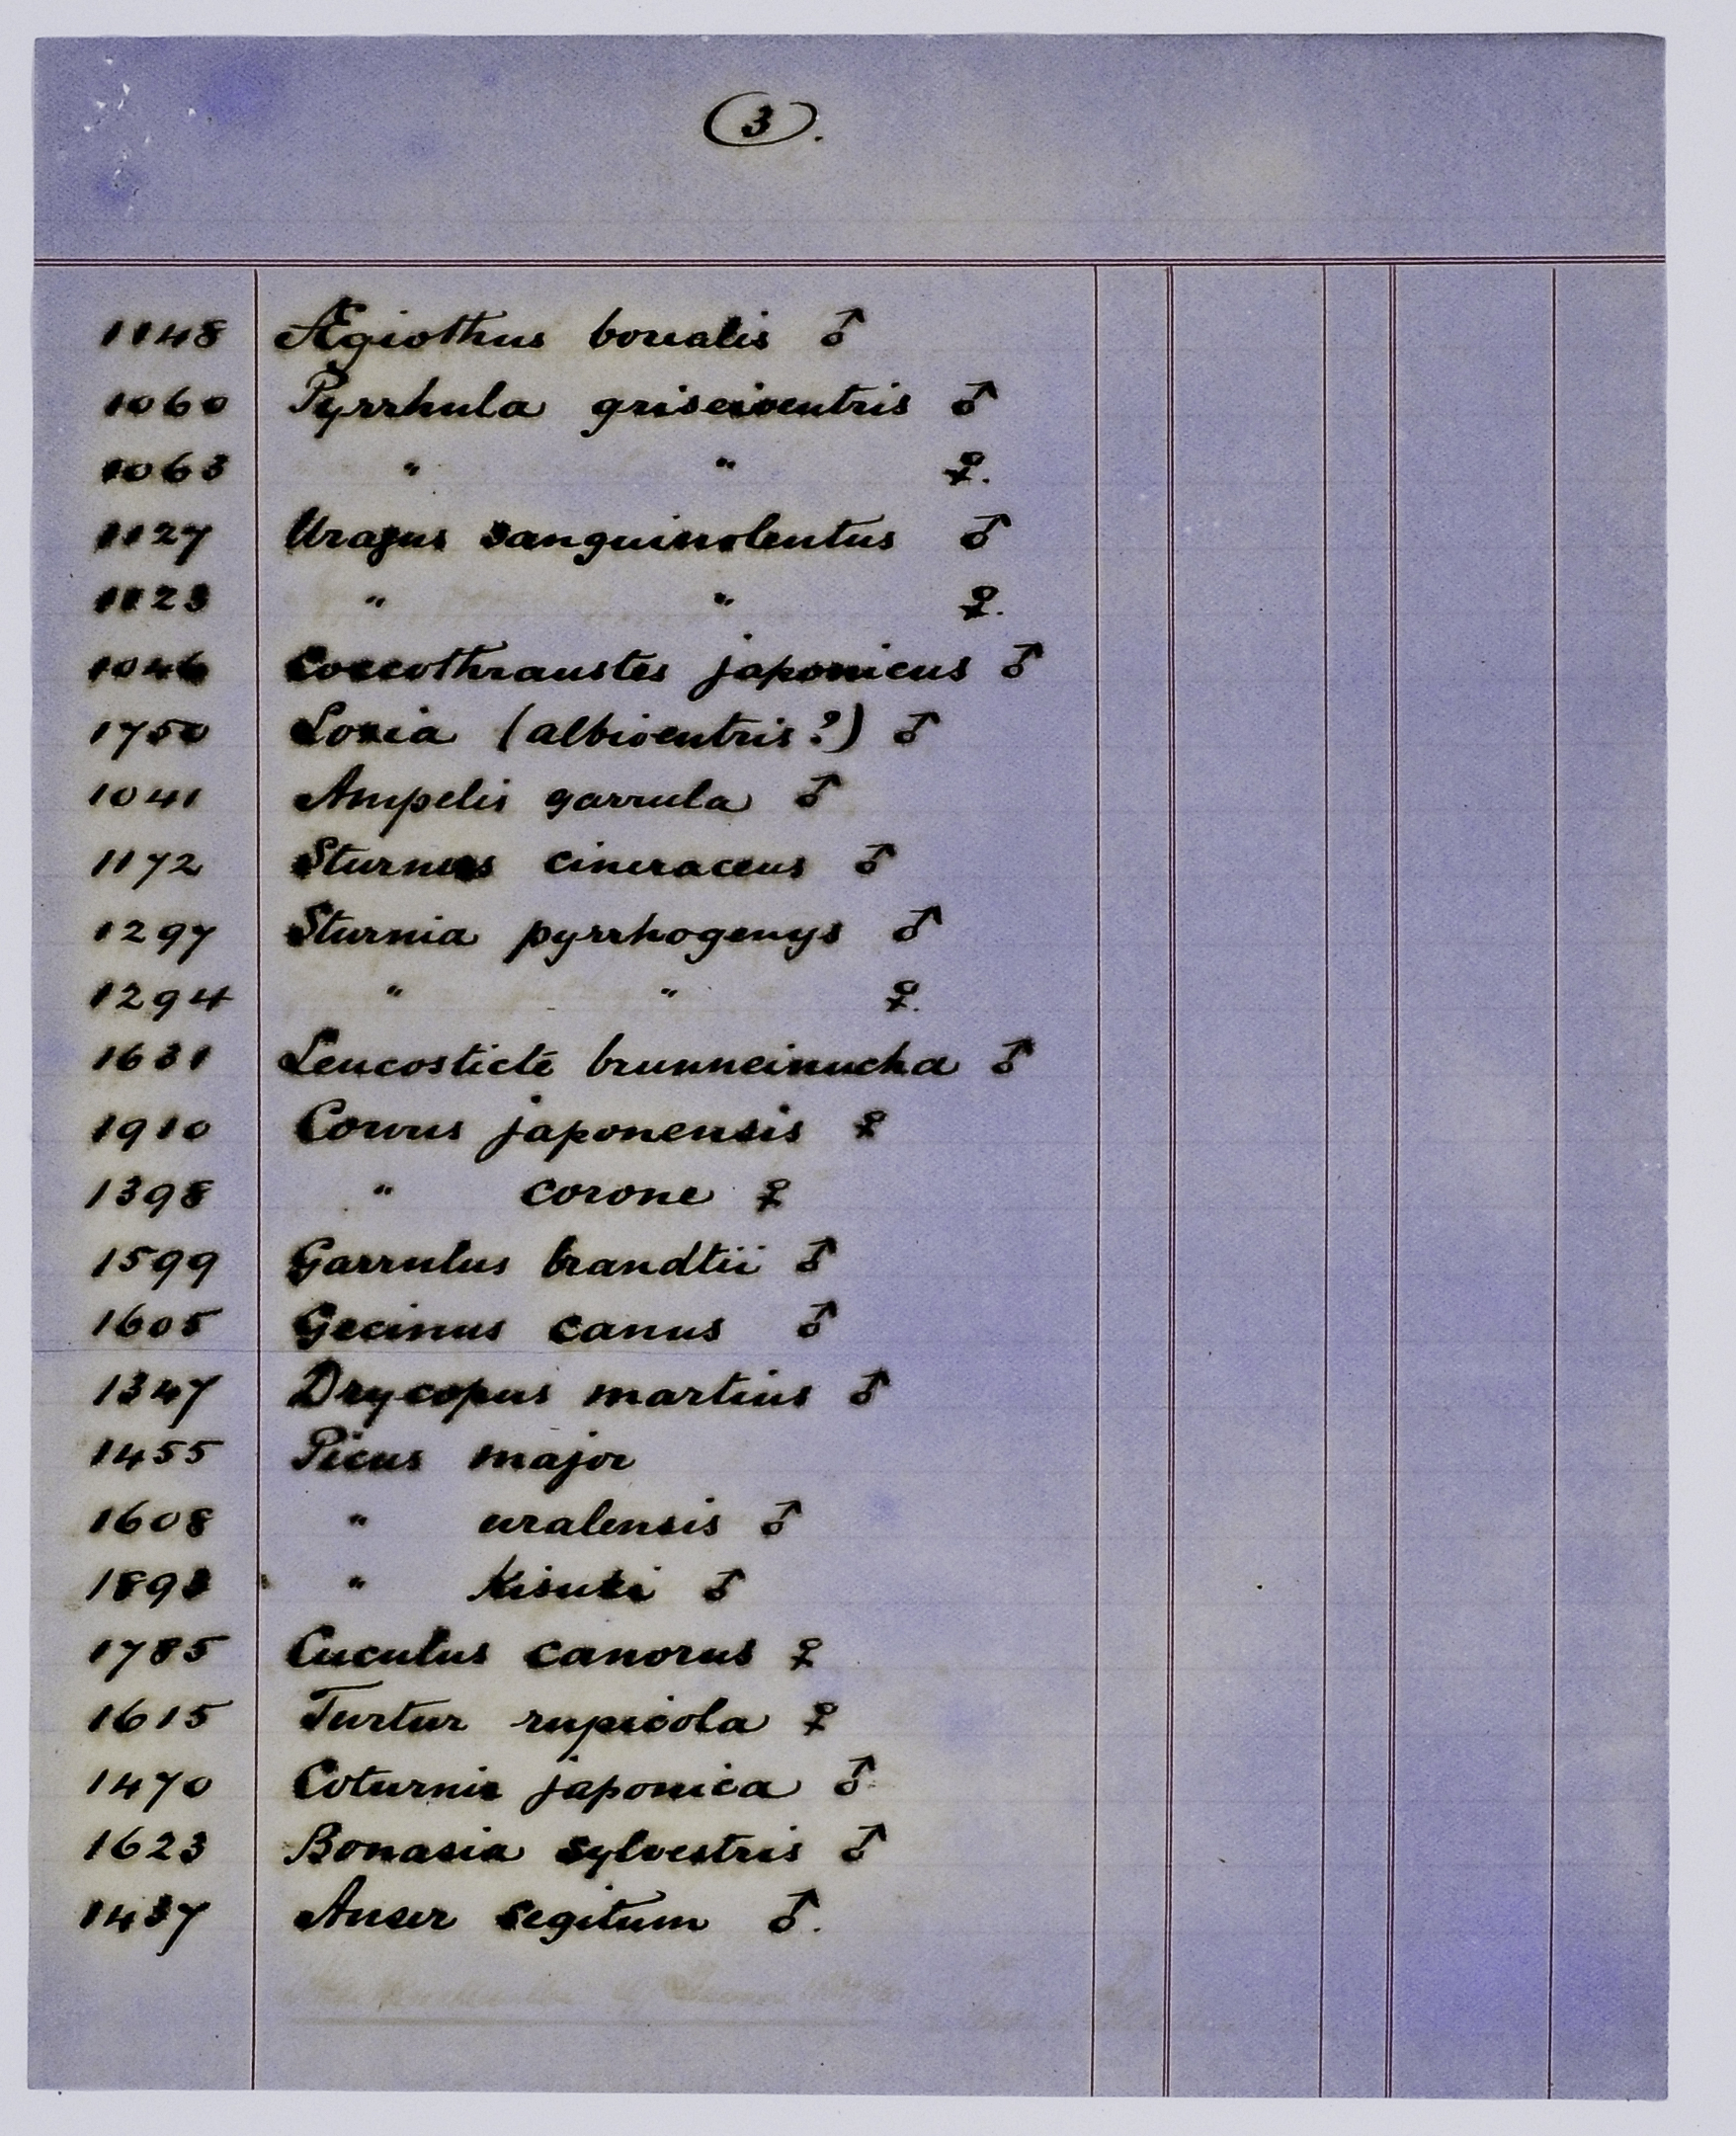 3.
1148 Ægiothus borealis ♂
1060 Pyrrhula griseiventris ♂
1063 " " ♀.
1127 Uragus sanguinolentus ♂
1123 " " ♀.
1046 Coccothraustes japonicus ♂
1750 Loxia (albiventris?) ♂
1041 Ampelis garrula ♂
1172 Sturnus cineraceus ♂
1297 Sturnia pyrrhogenys ♂
1294 " " ♀.
1631 Leucosticte brunneinucha ♂
1910 Corvus japonensis ♀
1398 " corone ♀
1599 Garrulus brandtii ♂
1605 Gecinus canus ♂
1347 Drycopus martius ♂
1455 Picus major
1608 " uralensis ♂
1893 " Kisuki ♂
1785 Cuculus canorus ♀
1615 Turtur rupicola ♀
1470 Coturnix japonica ♂
1623 Bonasia sylvestris ♂
1437 Anser segitum ♂.